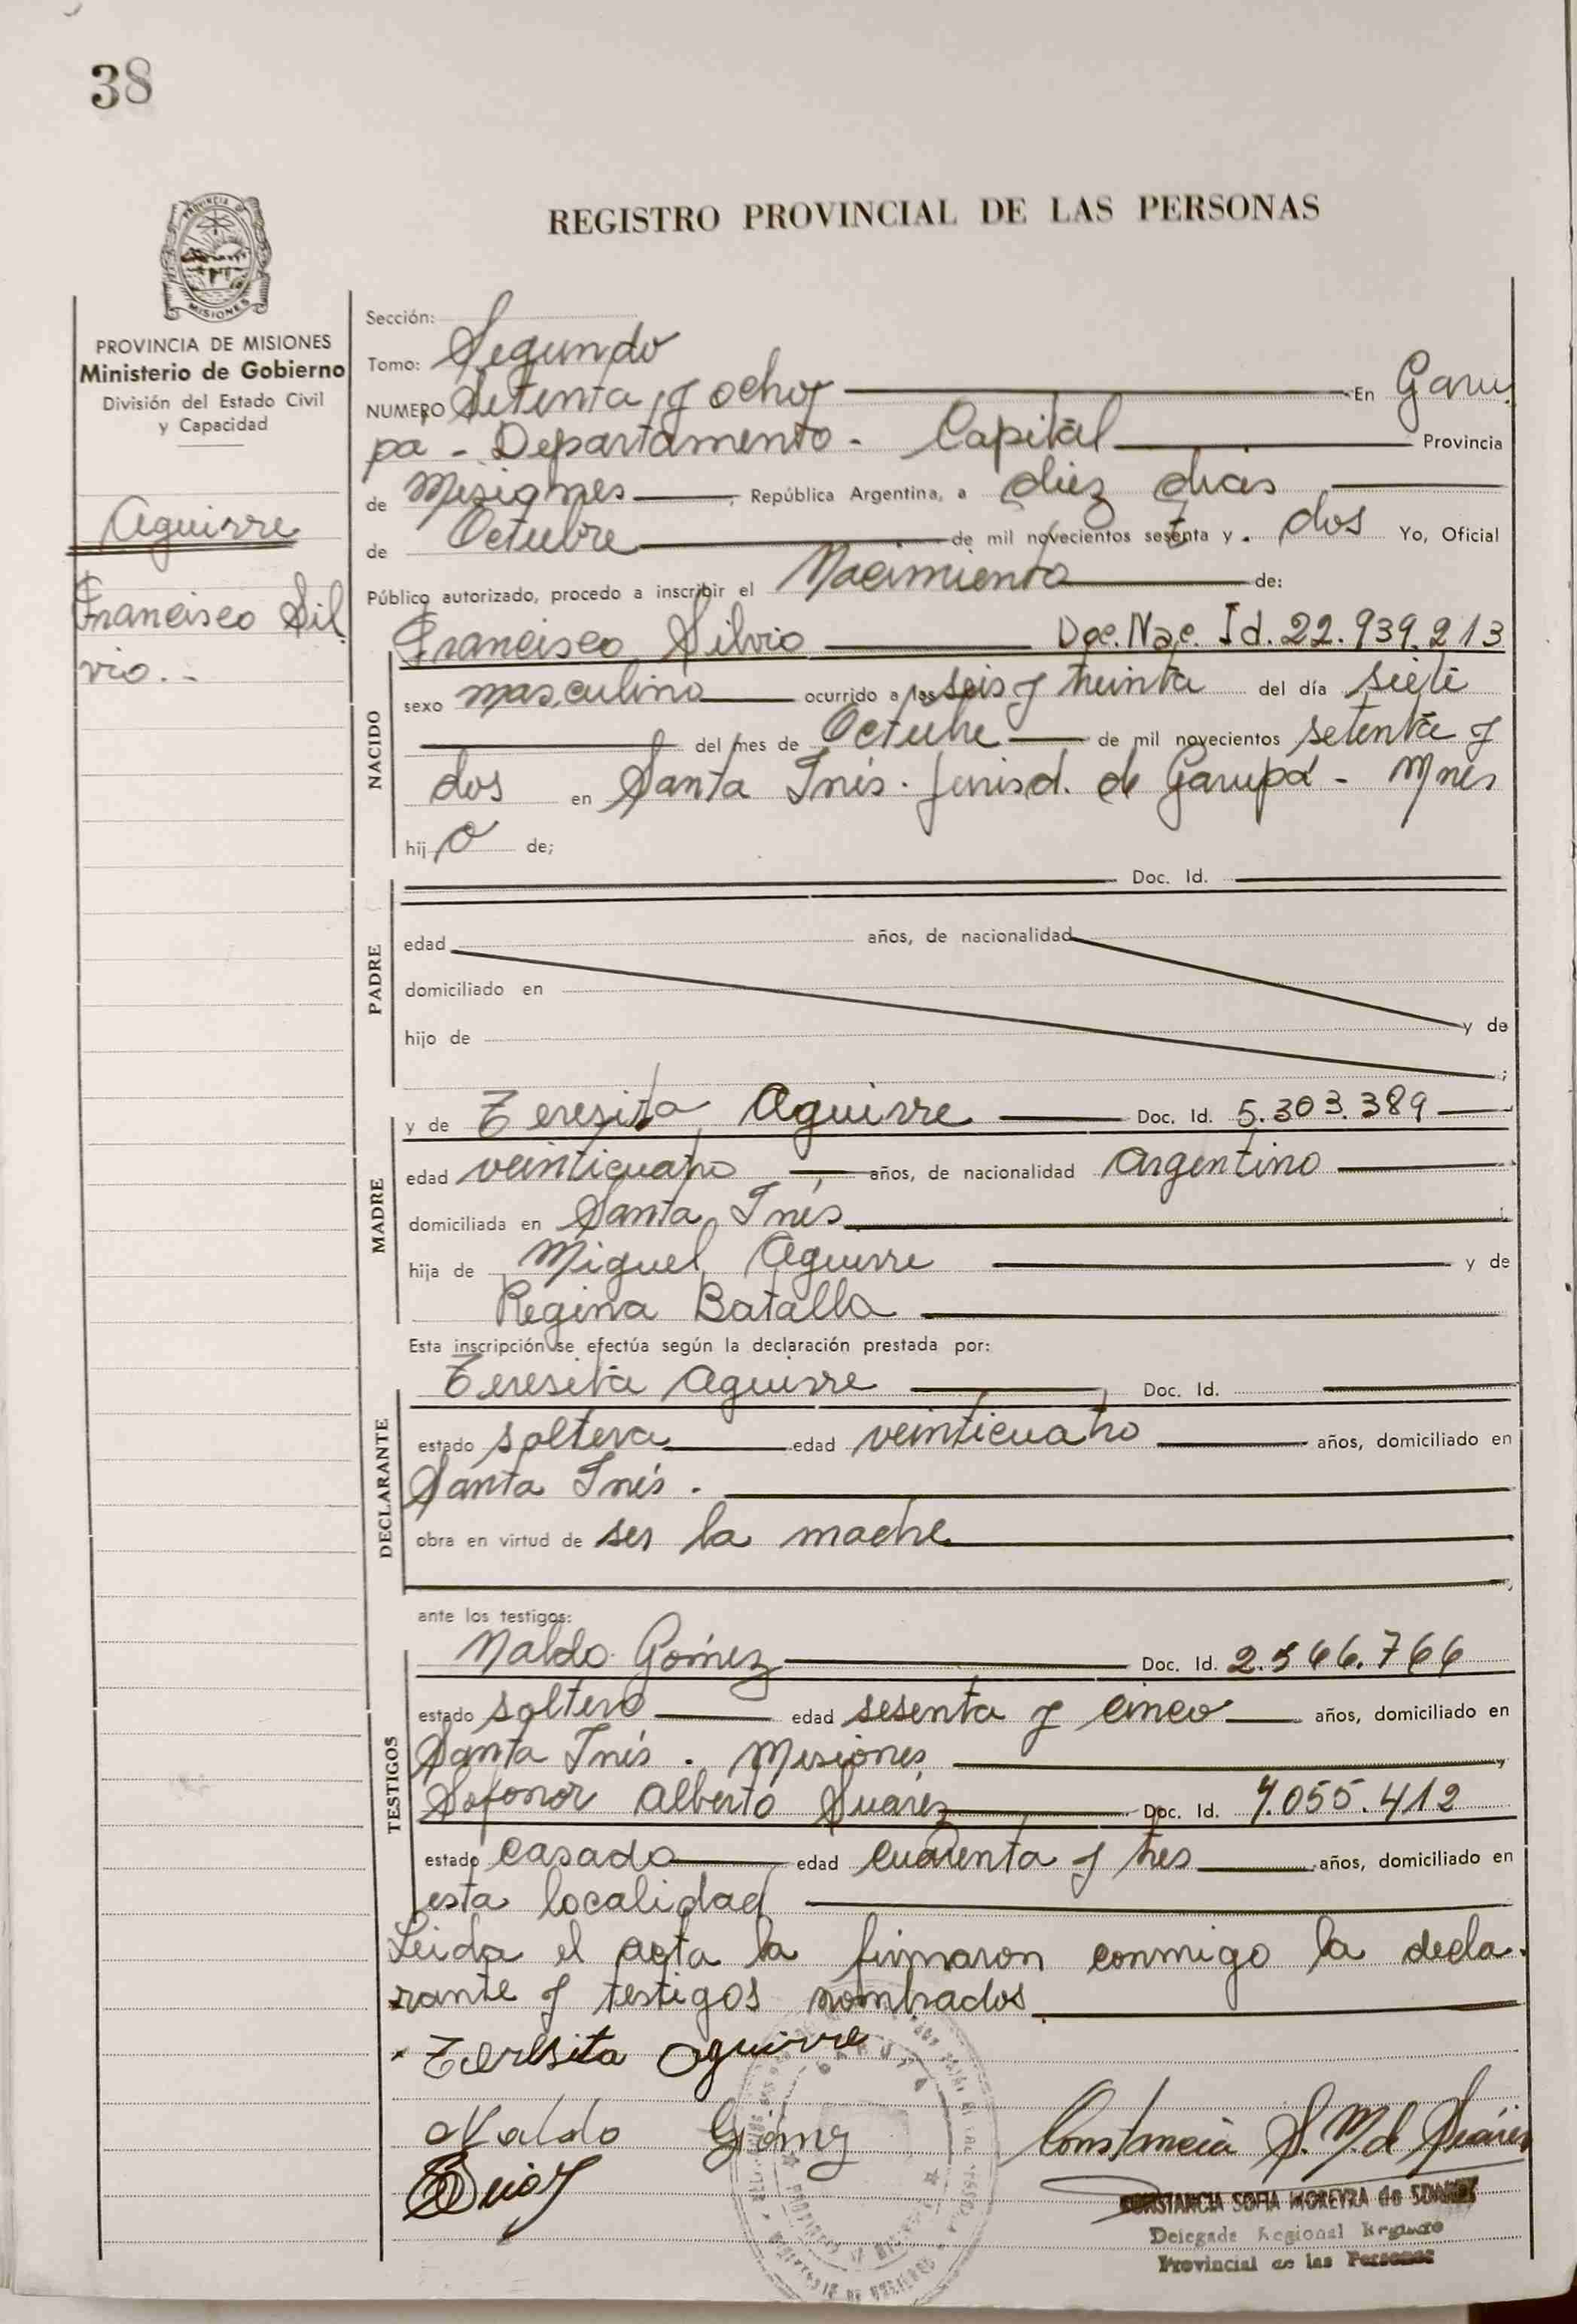 38
PROVINCIA DE
MISIONES
REGISTRO PROVINCIAL DE LAS PERSONAS
PROVINCIA DE MISIONES
Ministerio de Gobierno
División del Estado Civil
y Capacidad
Aguirre
Francisco Sil
vio.-
Sección:
Tomo: Segundo
NUMERO Setenta y ocho En Garu
pa - Departamento - Capital Provincia
de Misiones, República Argentina, a diez dias
de Octubre de mil novecientos setenta y dos Yo, Oficial
Público autorizado, procedo a inscribir el Nacimiento de:
NACIDO
Francisco Silvio Doc. Nac. Id. 22.939.213
sexo masculino ocurrido a las seis y treinta del día siete
del mes de Octubre de mil novecientos setenta y
dos en Santa Inés. jurisd. de Garupá - Mnes
hijo de;
PADRE
Doc. Id.
edad años, de nacionalidad
domiciliado en
hijo de y de
;
MADRE
y de Teresita Aguirre Doc. Id. 5.303.389
edad veinticuatro años, de nacionalidad Argentino
domiciliada en Santa Inés
hija de Miguel Aguirre y de
Regina Batalla
Esta inscripción se efectúa según la declaración prestada por:
DECLARANTE
Teresita Aguirre Doc. Id.
estado soltera edad veinticuatro años, domiciliado en
Santa Inés.
obra en virtud de ser la madre
ante los testigos:
TESTIGOS
Naldo Gómez Doc. Id. 2.566.766
estado soltero edad sesenta y cinco años, domiciliado en
Santa Inés. Misiones
Alberto Suárez Doc. Id. 7.055.412
estado casado edad cuarenta y tres años, domiciliado en
esta localidad
Leida el acta la firmaron conmigo la decla-
rante y testigos nombrados
Teresita Aguirre
Naldo Gómez
Constancia S. M. d Suárez
CONSTANCIA SOFIA MOREYRA de SUAREZ
Delegada Regional Registro
Provincial de las Personas